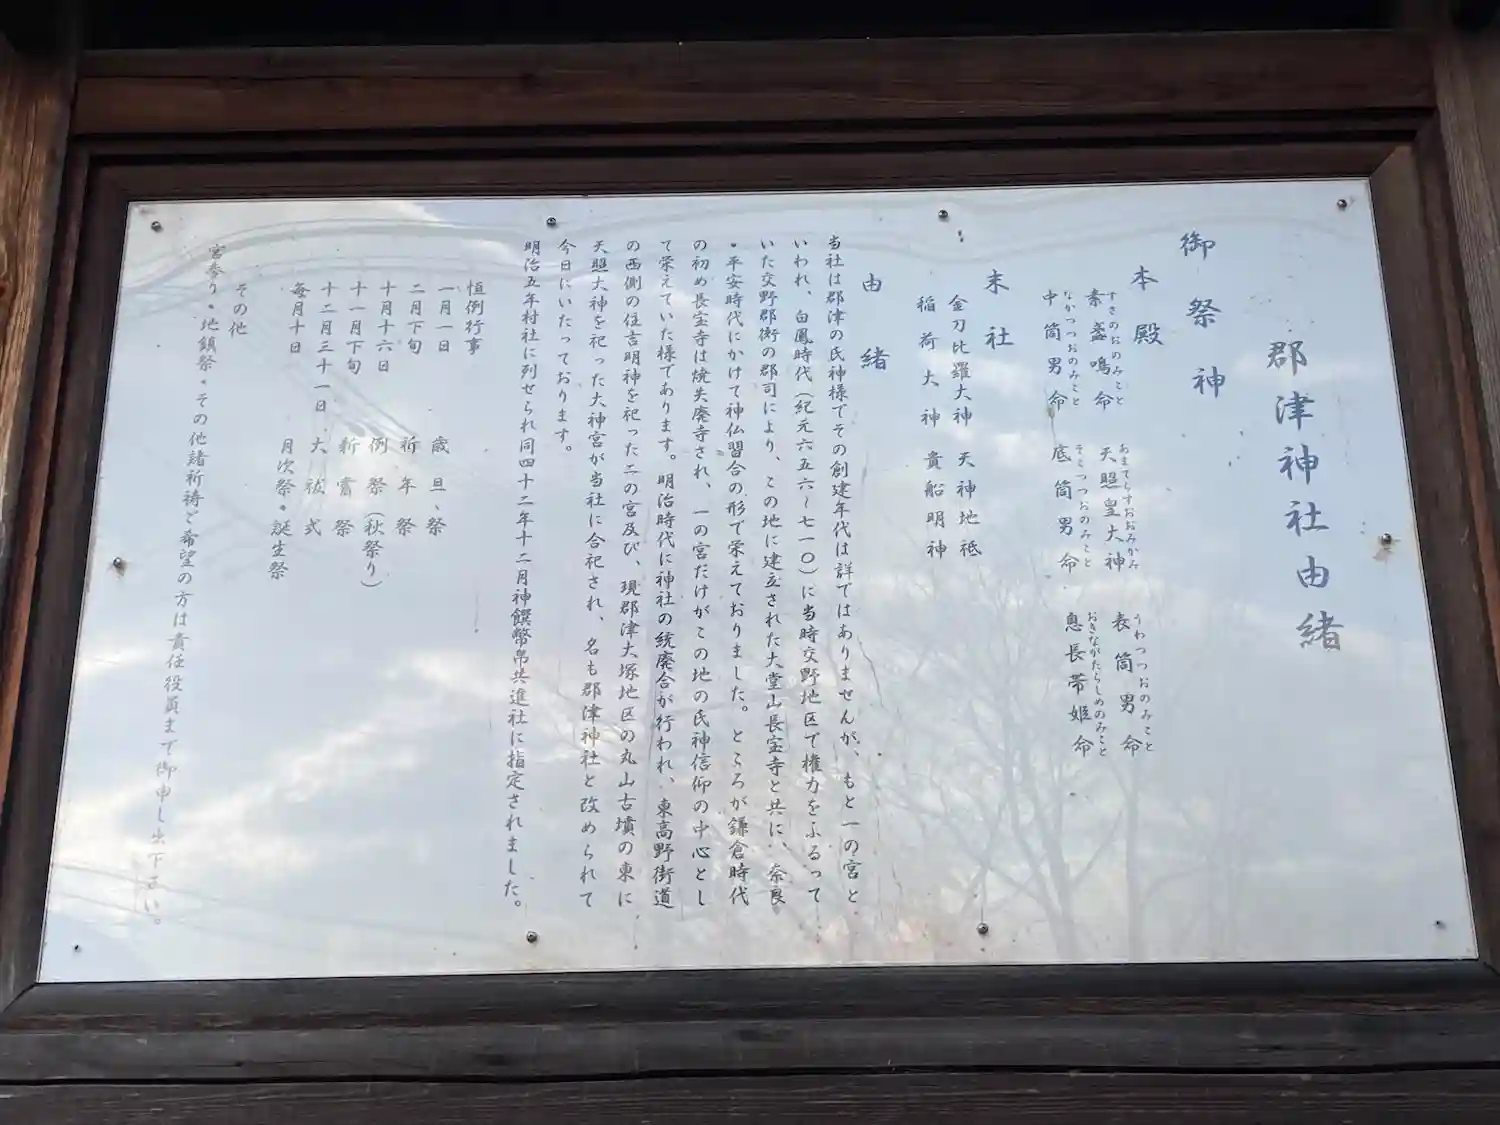 郡津神社由緒
御祭神
本殿
すさのおのみこと
素盞鳴命
あまてらすおおみかみ
天照皇大神
うわつつおのみこと
表筒男命
なかつつおのみこと
中筒男命
そこつつおのみこと
底筒男命
おきながたらしめのみこと
息長帯姫命
末社
金刀比羅大神 天神地祇
稲荷大神 貴船明神
由緒
当社は郡津の氏神様でその創建年代は詳ではありませんが、もと一の宮と
いわれ、白鳳時代(紀元六五六~七一〇)に当時交野地区で権力をふるって
いた交野郡衙の郡司により、この地に建立された大堂山長宝寺と共に、奈良
・平安時代にかけて神仏習合の形で栄えておりました。ところが鎌倉時代
の初め長宝寺は焼失廃寺され、一の宮だけがこの地の氏神信仰の中心とし
て栄えていた様であります。明治時代に神社の統廃合が行われ、東高野街道
の西側の住吉明神を祀った二の宮及び、現郡津大塚地区の丸山古墳の東に
天照大神を祀った大神宮が当社に合祀され、名も郡津神社と改められて
今日にいたっております。
明治五年村社に列せられ同四十二年十二月神饌幣帛共進社に指定されました。
恒例行事
一月一日 歳旦祭
二月下旬 祈年祭
十月十六日 例祭(秋祭り)
十一月下旬 新嘗祭
十二月三十一日 大祓式
毎月十日 月次祭・誕生祭
その他
宮参り・地鎮祭・その他諸祈祷ど希望の方は責任役員まで御申し出下さい。